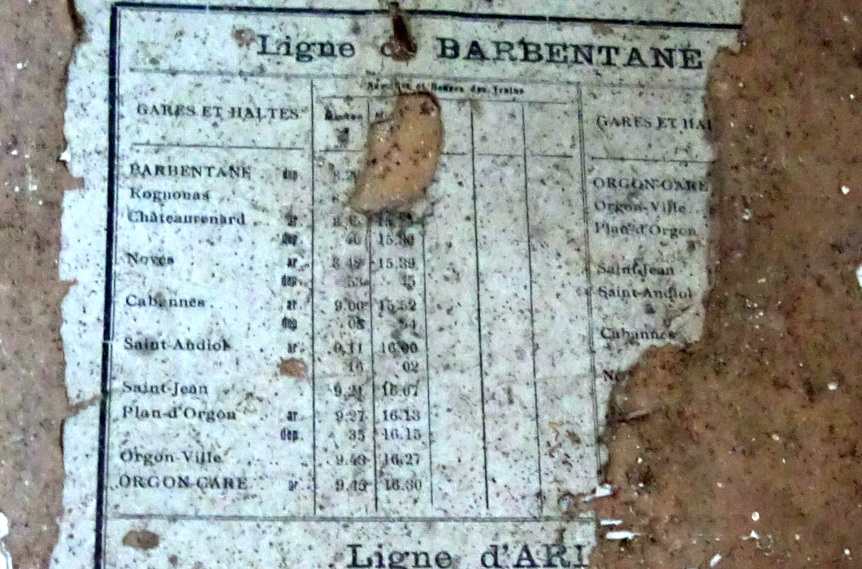 Ligne de BARBENTANE
et Heures des Trains
GARES ET HALTES
GARES ET HAL
BARBENTANE dép
Rognonas
Châteaurenard ar
dép 40 15.30
Noves ar 8.48 15.39
dép 53 45
Cabannes ar 9.00 15.52
dép 08 54
Saint-Andiol ar 9.11 16.00
16 02
Saint-Jean 9.21 16.07
Plan-d'Orgon ar 9.27 16.13
dép 35 16.15
Orgon-Ville 16.27
ORGON-GARE ar 16.30
ORGON-GARE
Orgon-Ville
Plan-d'Orgon
Saint-Jean
Saint-Andiol
Cabannes
No
Ligne d'ARI